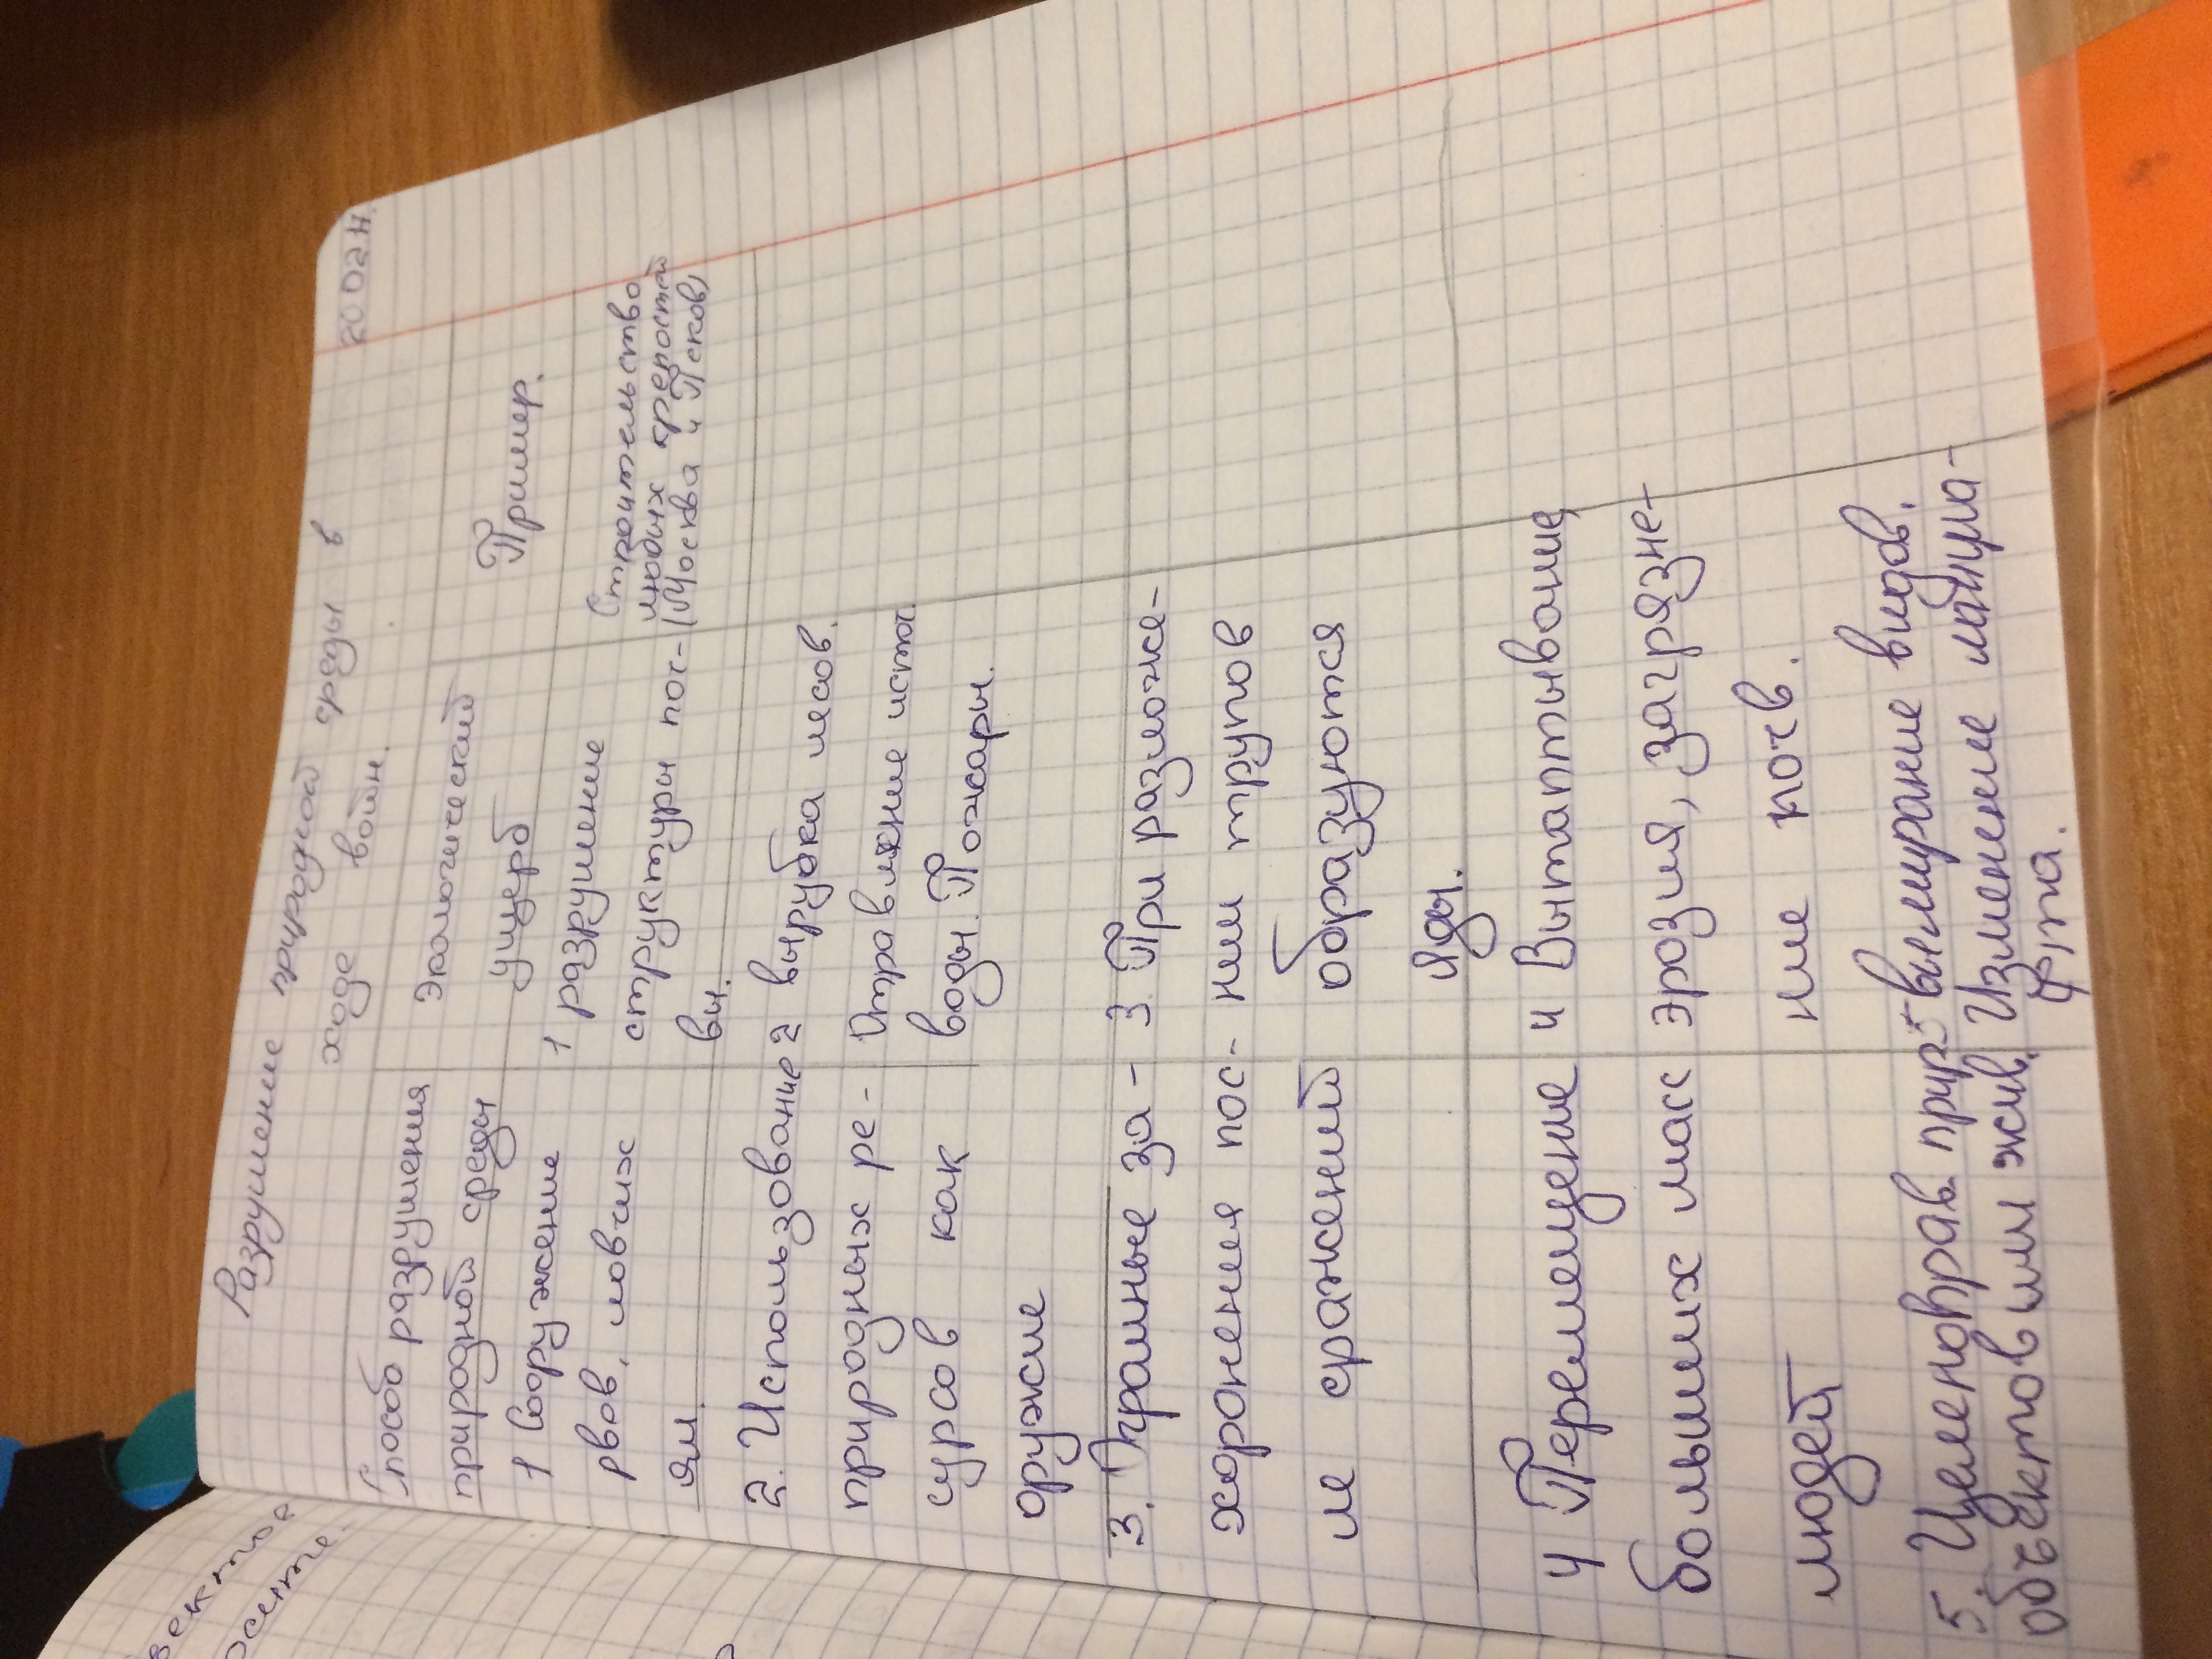 20.02.17.
Разрушение природной среды в
ходе войн.
Способ разрушения
природной среды
Экологический
ущерб
Пример.
1 Сооружение
рвов, ловчих
ям.
1 разрушение
структуры поч-
вы.
Строительство
любых крепостей
(Москва и Псков)
2. Использование
природных ре-
сурсов как
оружие
2 вырубка лесов.
Отравление источ
воды. Пожары.
3. Храмные за-
хоронения пос-
ле сражений
3. При разложе-
нии трупов
образуются
яды.
4 Перемещение
больших масс
людей
4 Вытаптывание,
эрозия, загрязне-
ние почв.
5. Целеноврав. прир.
объектов или жив.
5 вымирание видов.
Изменение ландша-
фта.